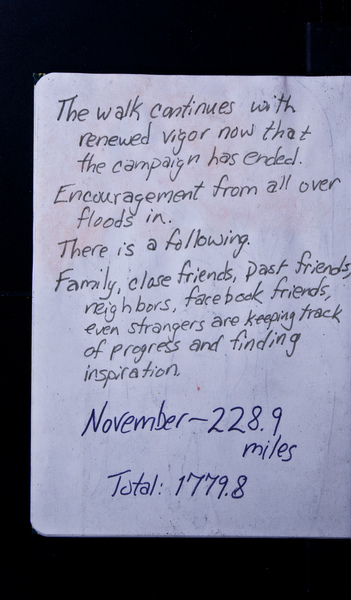 The walk continues with
renewed vigor now that
the campaign has ended.
Encouragement from all over
floods in.
There is a following.
Family, close friends, past friends,
neighbors, facebook friends,
even strangers are keeping track
of progress and finding
inspiration.
November-228.9
miles
Total: 1779.8